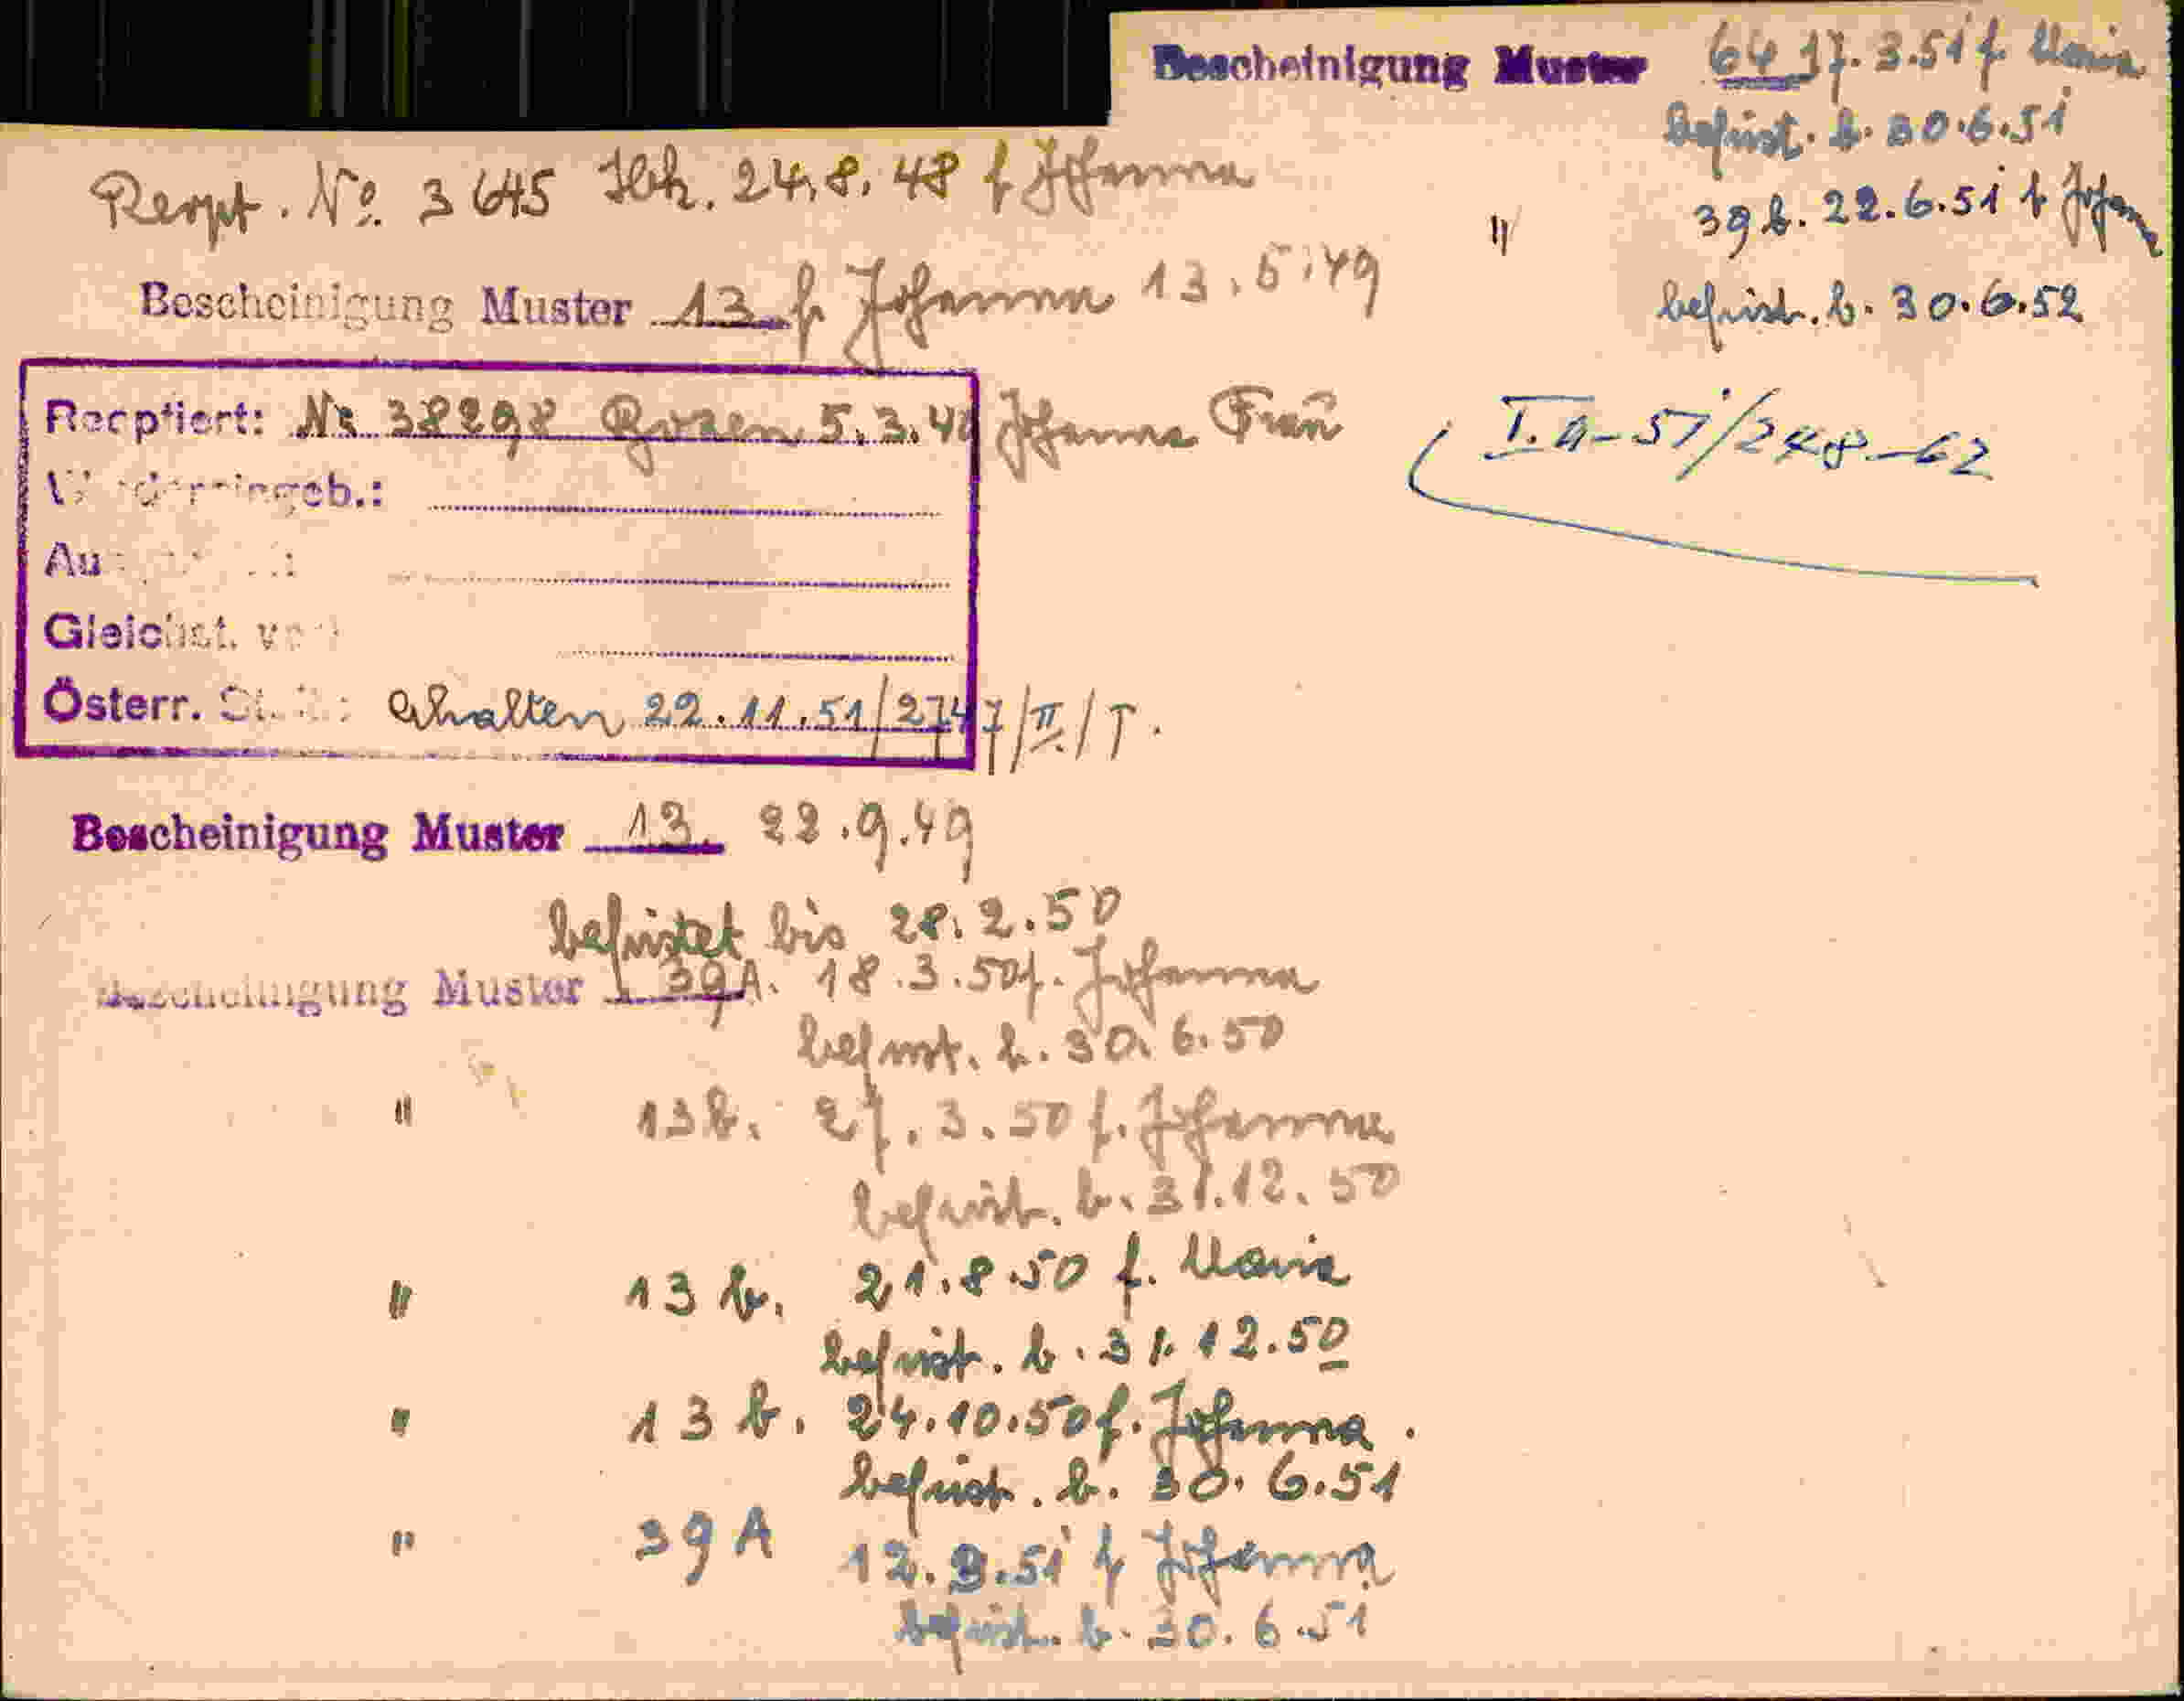 Bescheinigung Muster 64 17. 3.51 f Maria
befrist. b. 30.6.51
" 39 b. 22.6.51 f Johanna
befrist. b. 30.6.52
I.a-51/248-62
Rerpt. No. 3645 24.8.48 f Johanna
Bescheinigung Muster 13 f Johanna 13.5.49
Reoptiert: Nr 38298 Bozen 5.3.48 Johanna Frau
Wiedereingeb.:
Gleichst.
Österr. St. erhalten 22.11.51/2747/II/T.
Bescheinigung Muster 13. 22.9.49
befristet bis 28.2.50
Bescheinigung Muster 39A. 18.3.50 f. Johanna
befrist. b. 30.6.50
" 13b. 27.3.50 f. Johanna
befrist. b. 31.12.50
" 13 b. 21.8.50 f. Maria
befrist. b. 31.12.50
" 13 b. 24.10.50 f. Johanna.
befrist. b. 30.6.51
" 39 A 12.3.51 f Johanna
befrist. b. 30.6.51